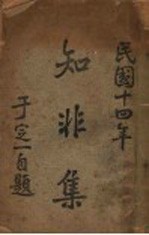 民國十四年
知非集
于定一自題